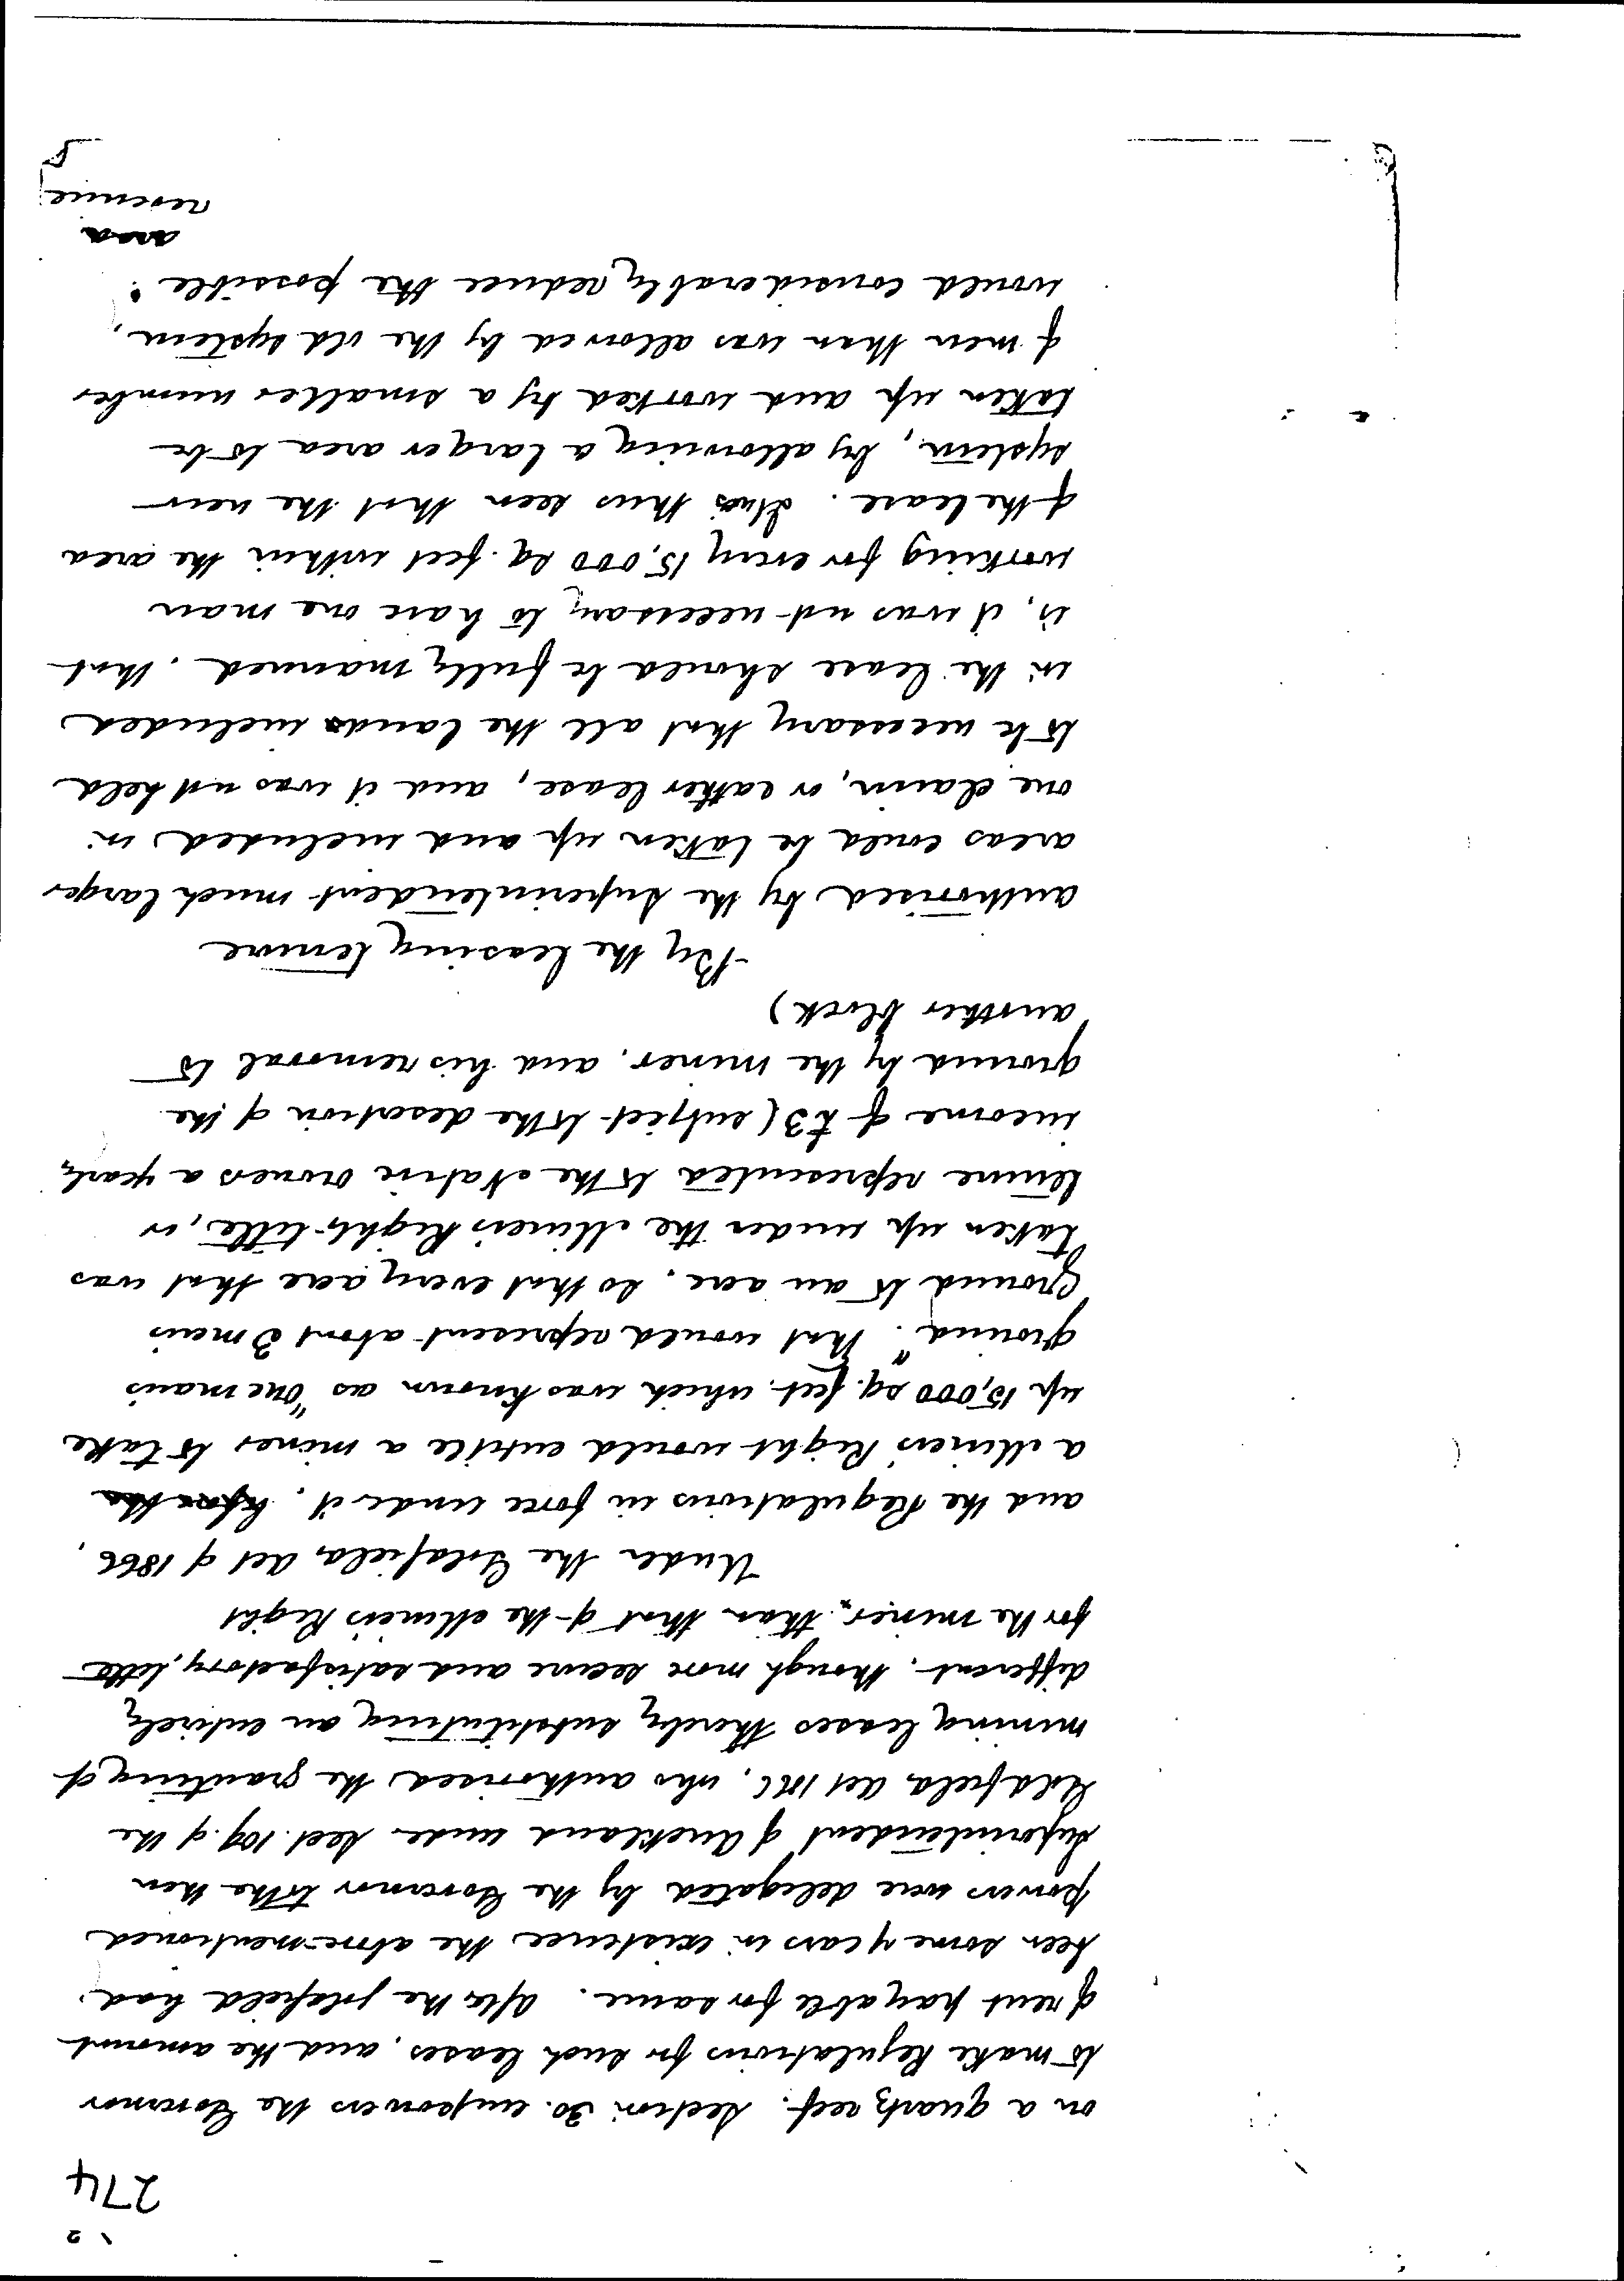 2
274
on a quartz reef. Section 30. empowers the Governor
to make Regulations for such leases, and the amount
of rent payable for same. After the goldfield had
been some years in existence the above-mentioned
powers were delegated by the Governor to the then
Superintendent of Auckland under Sect. 109 of the
Goldfields Act 1866, who authorised the granting of
mining leases thereby substituting an entirely
different, though more secure and satisfactory, title
for the miner, than that of the Miner's Right
Under the Goldfields Act of 1866,
and the Regulations in force under it,
a Miner's Right would entitle a miner to take
up 15,000 sq. feet. which was known as "one man's
ground". That would represent about 3 men's
ground to an acre, so that every acre that was
taken up under the Miner's Right title, or
tenure represented to the Native owners a yearly
income of £3 (subject to the desertion of the
ground by the miner, and his removal to
another block)
By the leasing tenure
authorised by the Superintendent much larger
areas could be taken up and included in
one claim, or rather lease, and it was not held
to be necessary that all the lands included
in the lease should be fully manned. that
is, it was not necessary to have one man
working for every 15,000 sq. feet within the area
of the lease. It is thus seen that the new
system, by allowing a larger area to be
taken up and worked by a smaller number
of men than was allowed by the old system,
would considerably reduce the possible
area
revenue